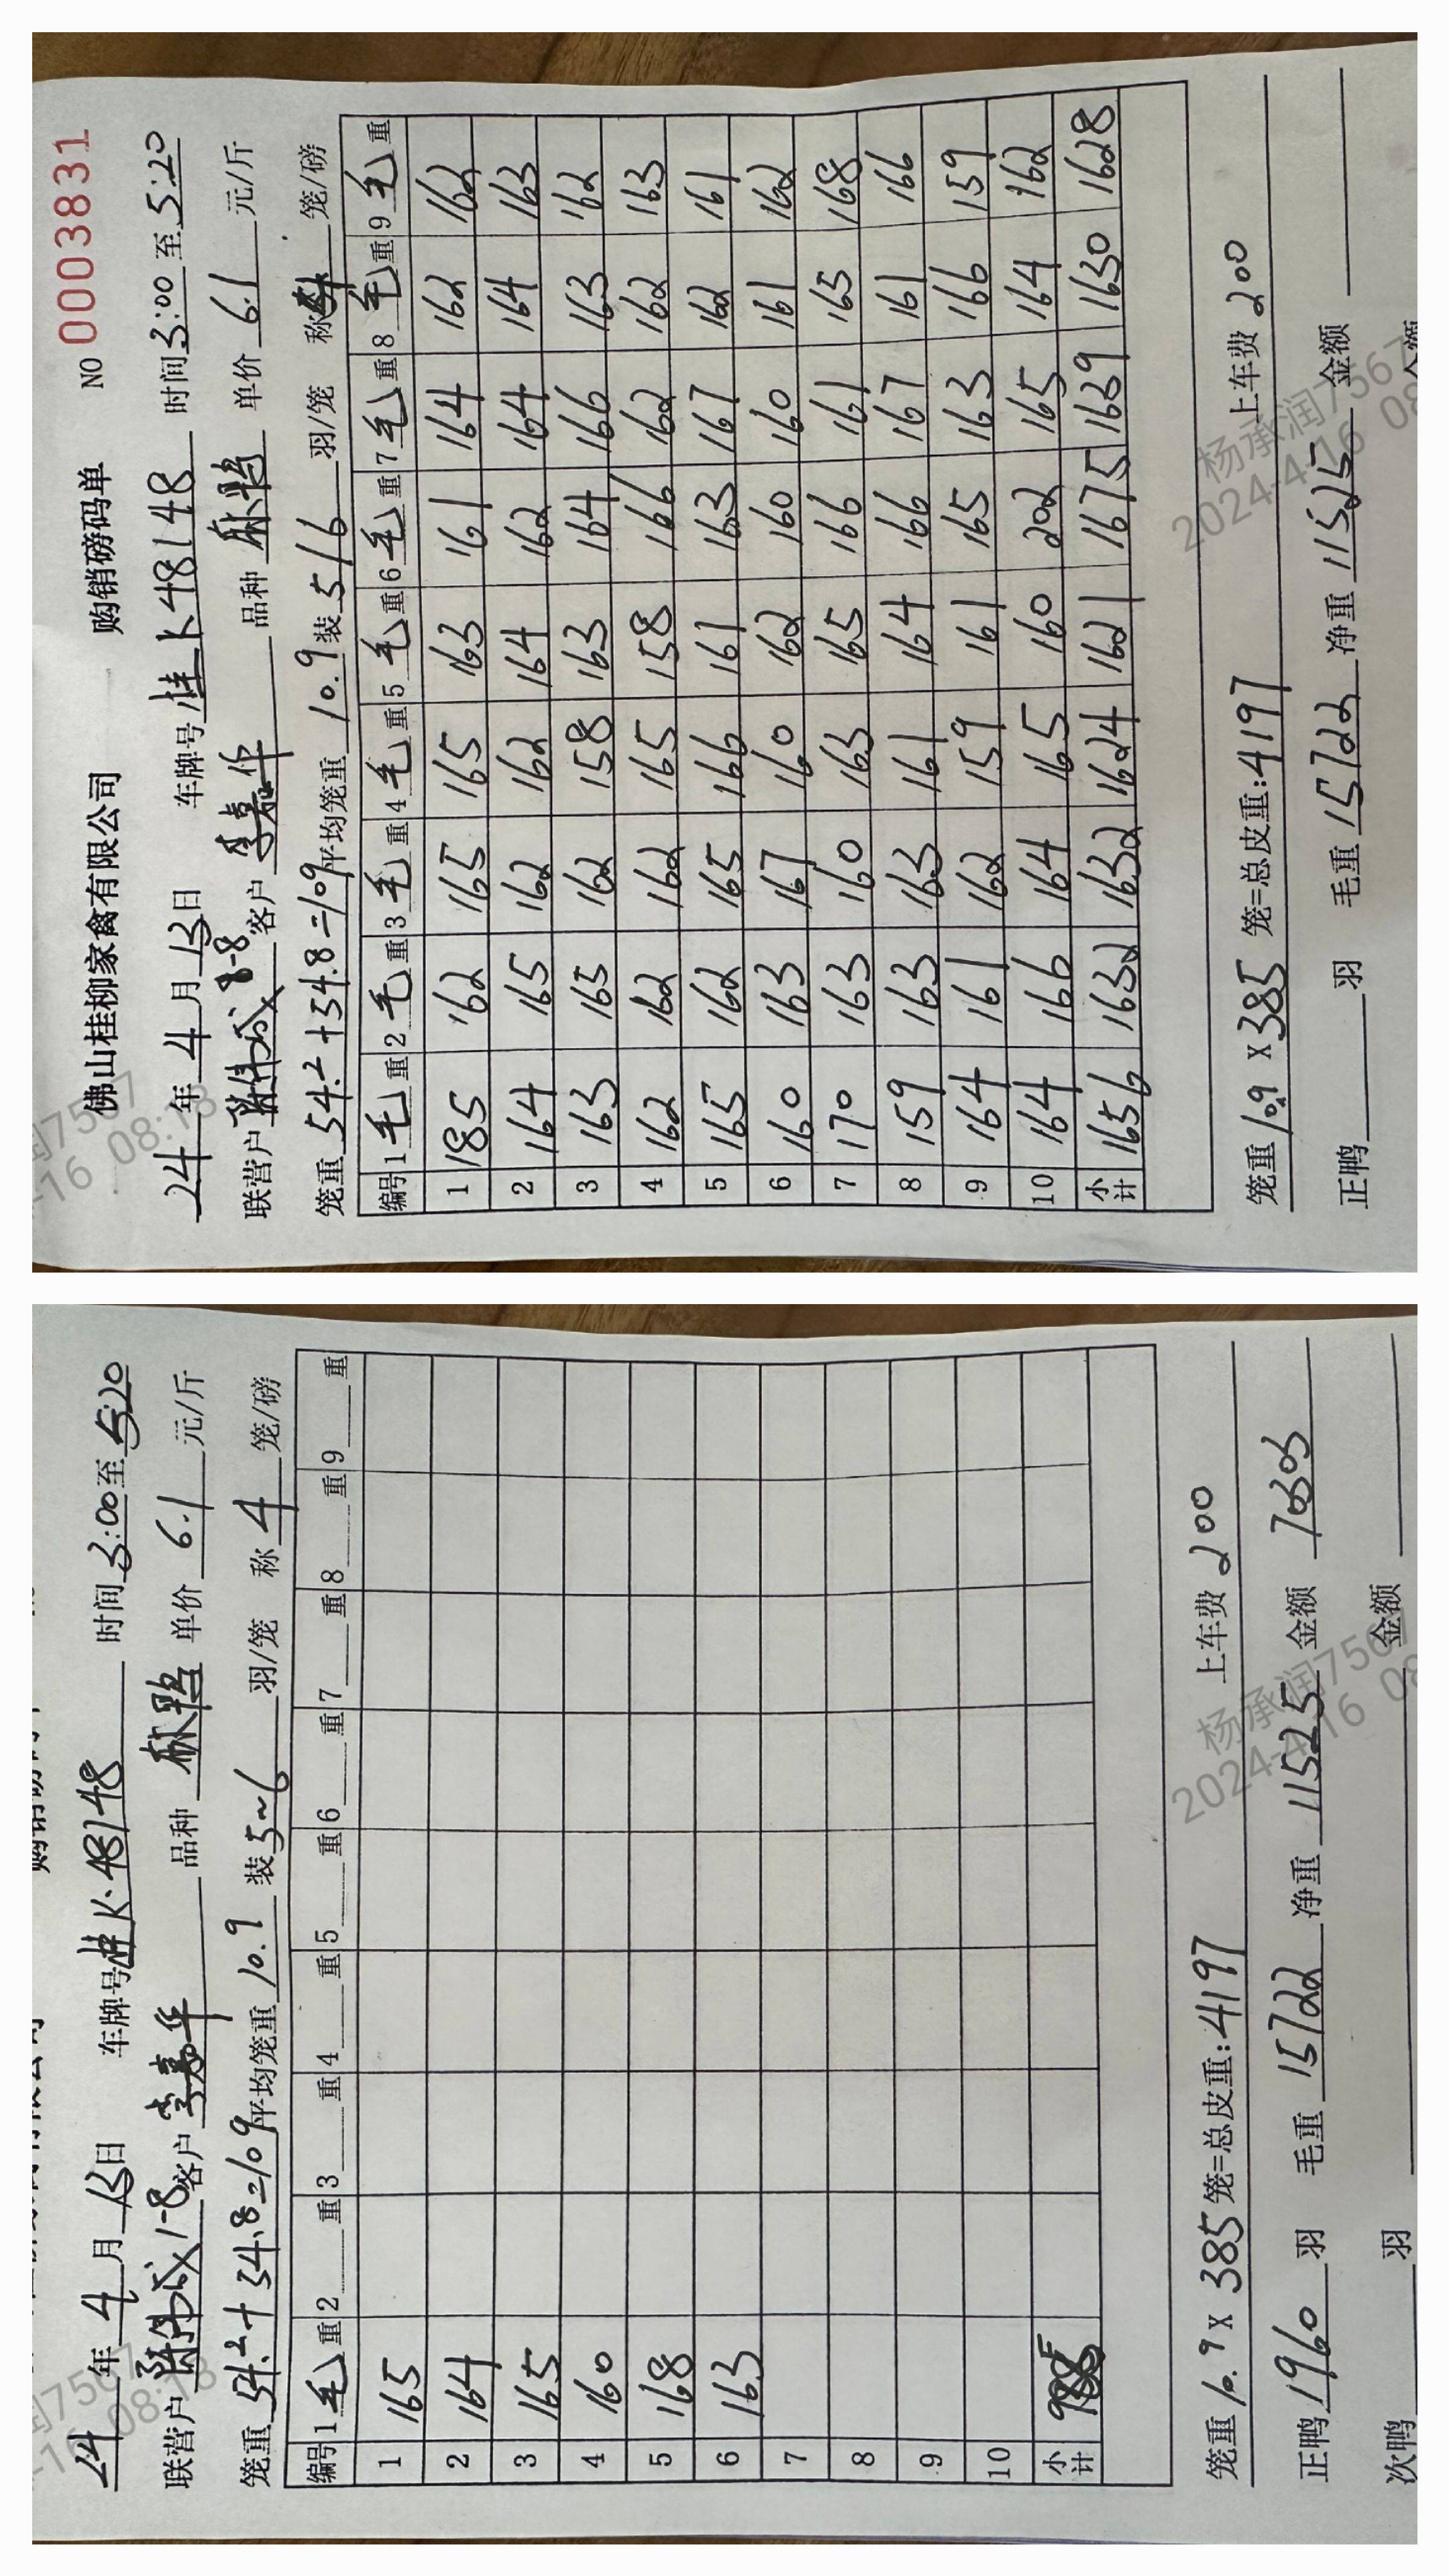 佛山桂柳家禽有限公司 购销磅码单 NO 0003831
24年4月13日 车牌号桂K48148 时间3:00至5:20
联营户 1-8 客户李嘉华 品种麻鸭 单价6.1元/斤
笼重54.2+54.8=109平均笼重10.9装516羽/笼 称 笼/磅
编号 1毛重 2毛重 3毛重 4毛重 5毛重 6毛重 7毛重 8毛重 9毛重
1 185 162 165 165 163 161 164 162 162
2 164 165 162 162 164 162 164 164 163
3 163 165 162 158 163 164 166 163 162
4 162 162 162 165 158 166 162 162 163
5 165 162 165 166 161 163 167 162 161
6 160 163 167 160 162 160 160 161 162
7 170 163 160 163 165 166 161 165 168
8 159 163 163 161 164 166 167 161 166
9 164 161 162 159 161 165 163 166 159
10 164 166 164 165 160 202 165 164 162
小计 1656 1632 1632 1624 1621 1675 1639 1630 1628
笼重10.9×385笼=总皮重:4197 上车费200
正鸭 羽 毛重15722净重11525金额
杨承润7567
2024-4-16 08
润7567
-16 08:18
24年4月13日 车牌号桂K·48148 时间3:00至5:20
联营户 1-8客户李嘉华 品种麻鸭 单价6.1元/斤
笼重54.2+54.8=109平均笼重10.9装5~6羽/笼 称4笼/磅
编号 1毛重 2 重 3 重 4 重 5 重 6 重 7 重 8 重 9 重
1 165
2 164
3 165
4 160
5 168
6 163
7
8
9
10
小计
笼重10.9×385笼=总皮重:4197 上车费200
正鸭1960羽 毛重15722净重11525金额70303
次鸭 羽 金额
杨承润7567
2024-4-16 08
润7567
-16 08:18